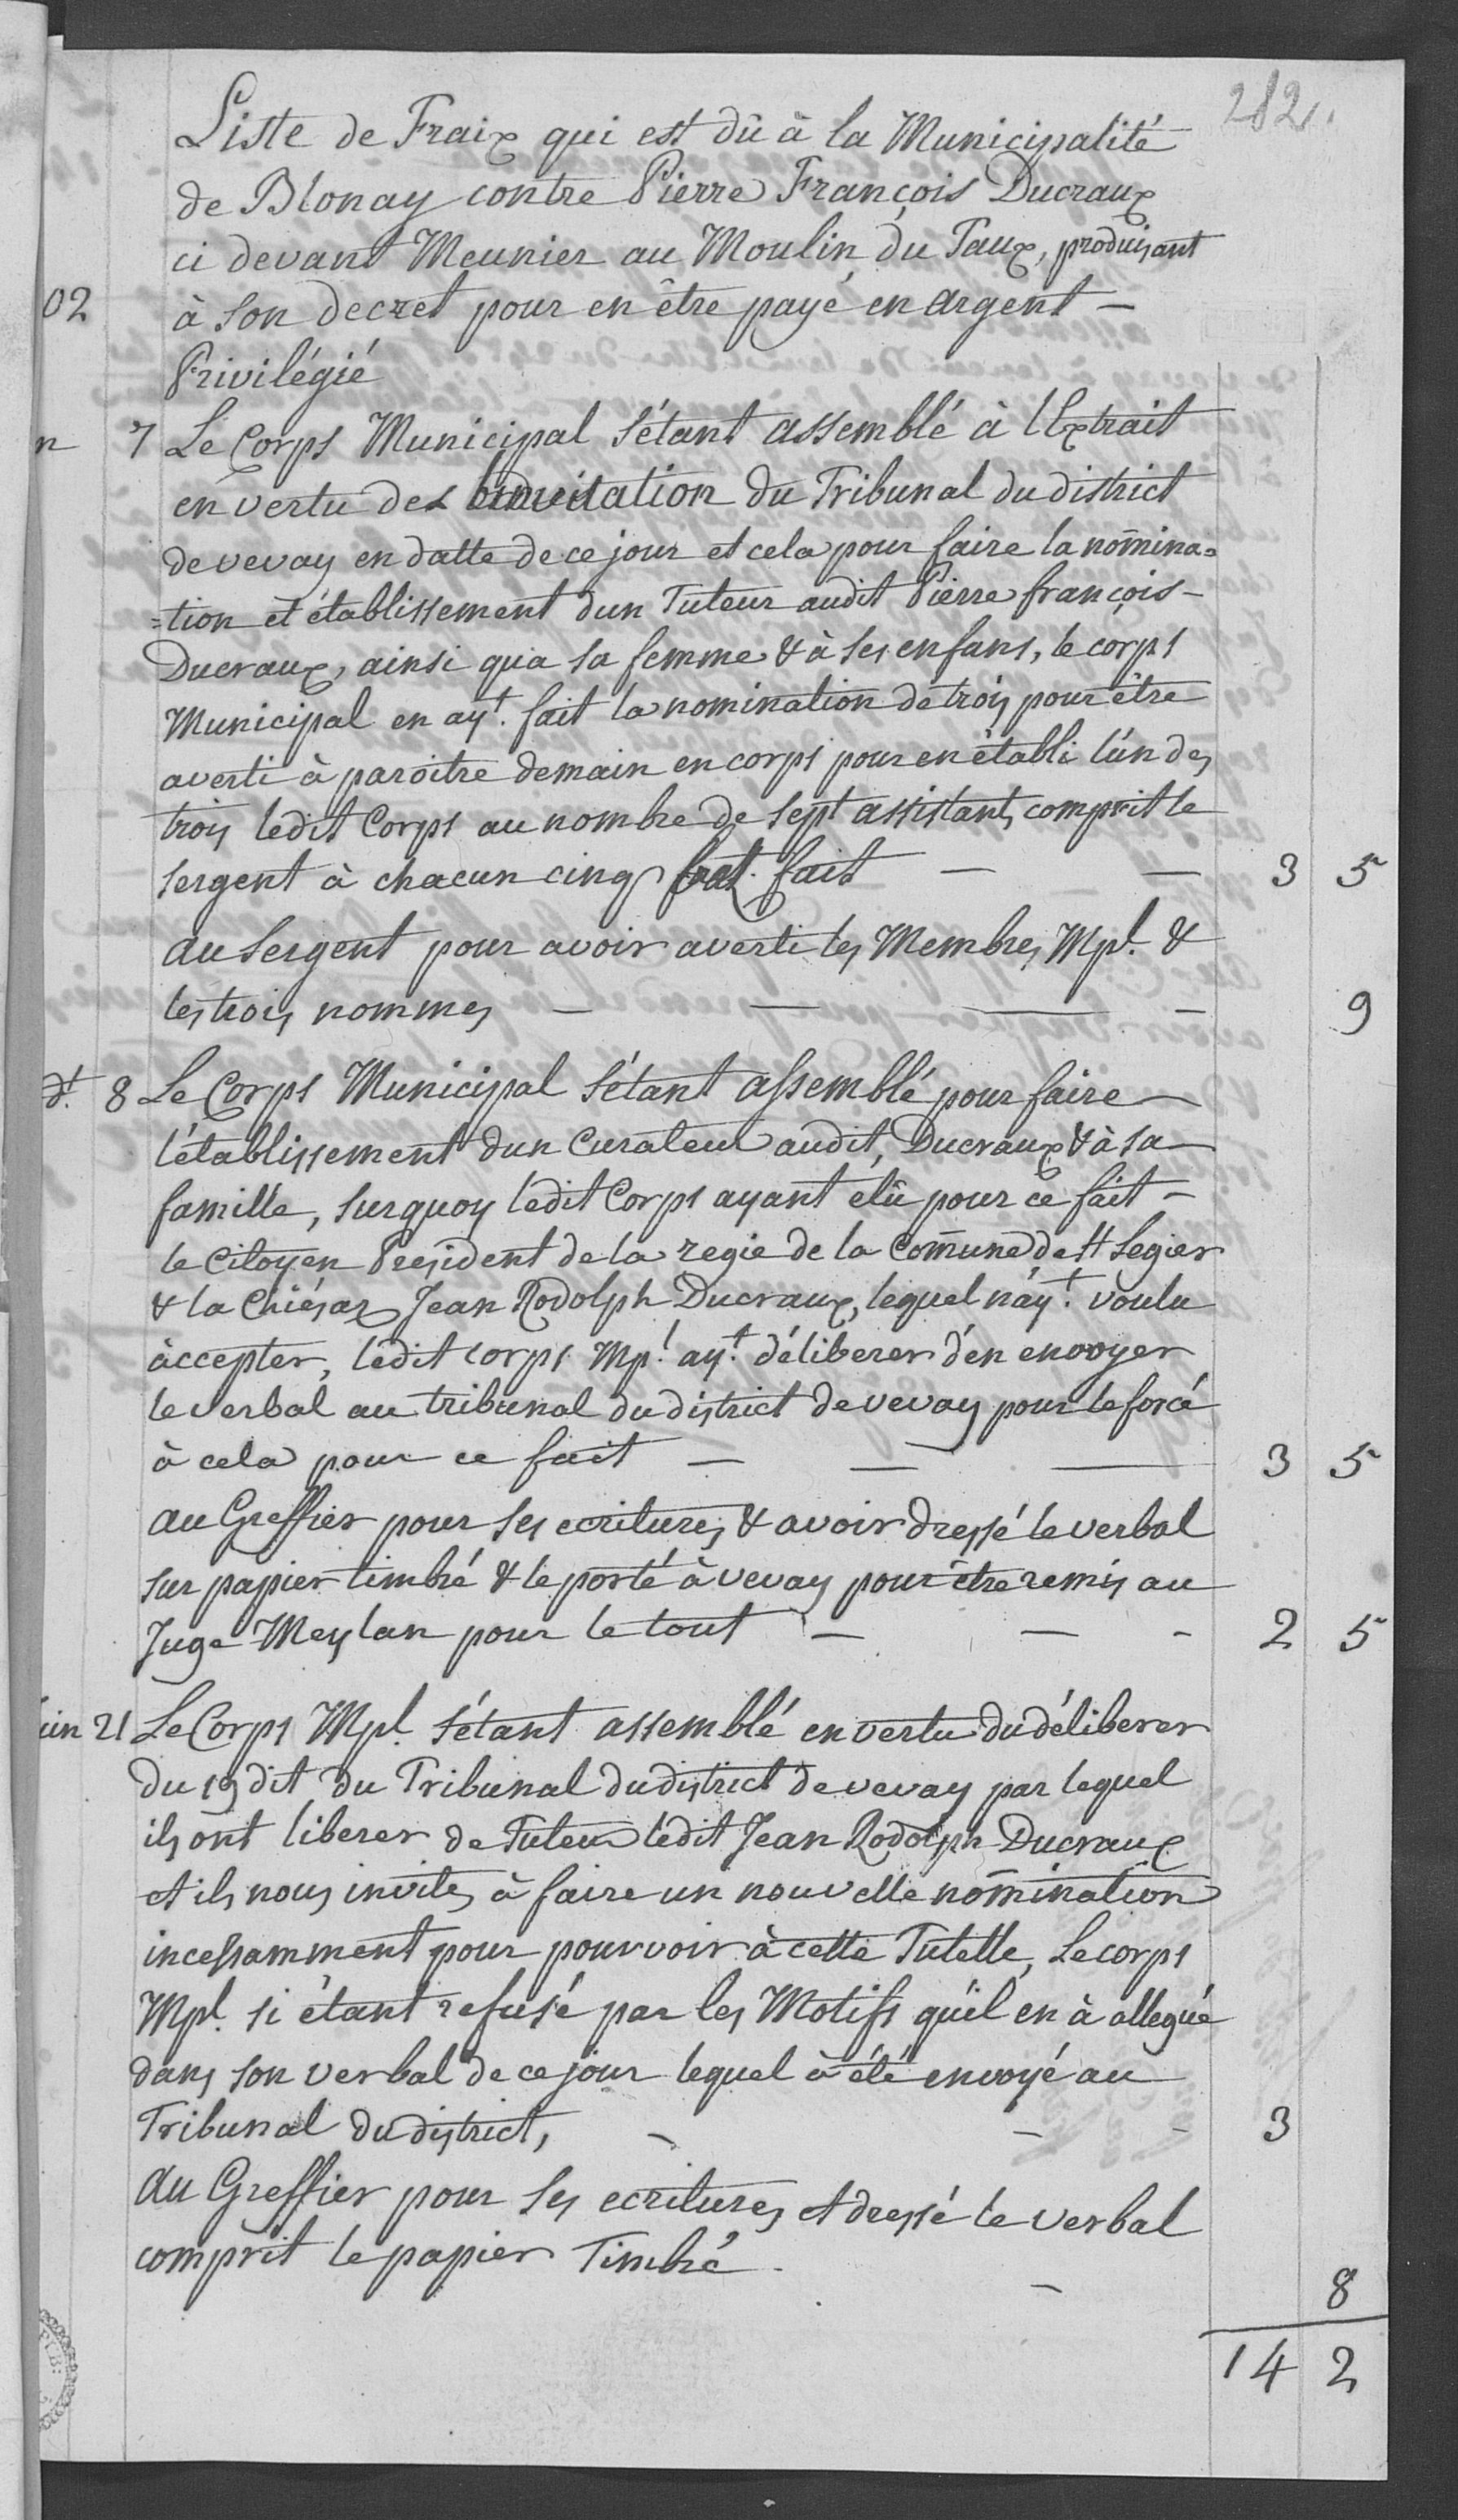 282.
Liste de Fraix qui est dû à la Municipalité
de Blonay contre Pierre François Ducraux
ci devant Meunier au Moulin du Taux, produisant
02 à son decret pour en être payé en argent —
Privilégié
n 7 Le Corps Municipal s'étant assemblé à l'Extrait
en vertu de L invitation du Tribunal du district
de vevay en datte de ce jour et cela pour faire la nom̄ina=
=tion et établissement dun Tuteur audit Pierre françois -
Ducraux, ainsi qu'a sa femme & à ses enfans, le corps
Municipal en ayt. fait la nomination de trois pour être
averti à paroitre demain en corps pour en établi l'ún des
trois ledit Corps au nombre de sept assistants, comprit le
sergent à chacun cinq bat. fait — — 3 5
au sergent pour avoir averti les Membres Mpl. &
les trois nommes — — — - 9
dt. 8 Le Corps Municipal s'étant assemblé pour faire —
l'établissement dun Curateur audit, Ducraux & à sa
famille, surquoy ledit Corps ayant elû pour ce fait -
le Citoyen President de la regie de la Com̄une de St Legier
& la Chiésaz Jean Rodolph Ducraux, lequel n'ayt. voulu
àccepter, ledit corps Mpl. ayt. déliberer d'en envoyer
le verbal au tribunal du district de vevay pour le forcé
à cela pour ce fait — — — 3 5
au Greffier pour ses ecritures & avoir dressé le verbal
sur papier timbré & le porté à vevay pour être remis au
Juge Meylan pour le tout — — - 2 5
uin 21 Le Corps Mpl. s'étant assemblé en vertu du déliberer
du 19 dit du Tribunal du district de vevay par lequel
ils ont liberer de Tuteur ledit Jean Rodolph Ducraux
et ils nous invites à faire un nouvelle nom̄ination
incessamment pour pourvoir à cette Tutelle, Le corps
Mpl. si étant refusé par les Motifs qu'il en à allegué
dans son verbal de ce jour lequel à été envoyé au
Tribunal du district, - - - 3
au Greffier pour ses ecritures et dressé le verbal
comprit le papier Timbré - - 8
14 2